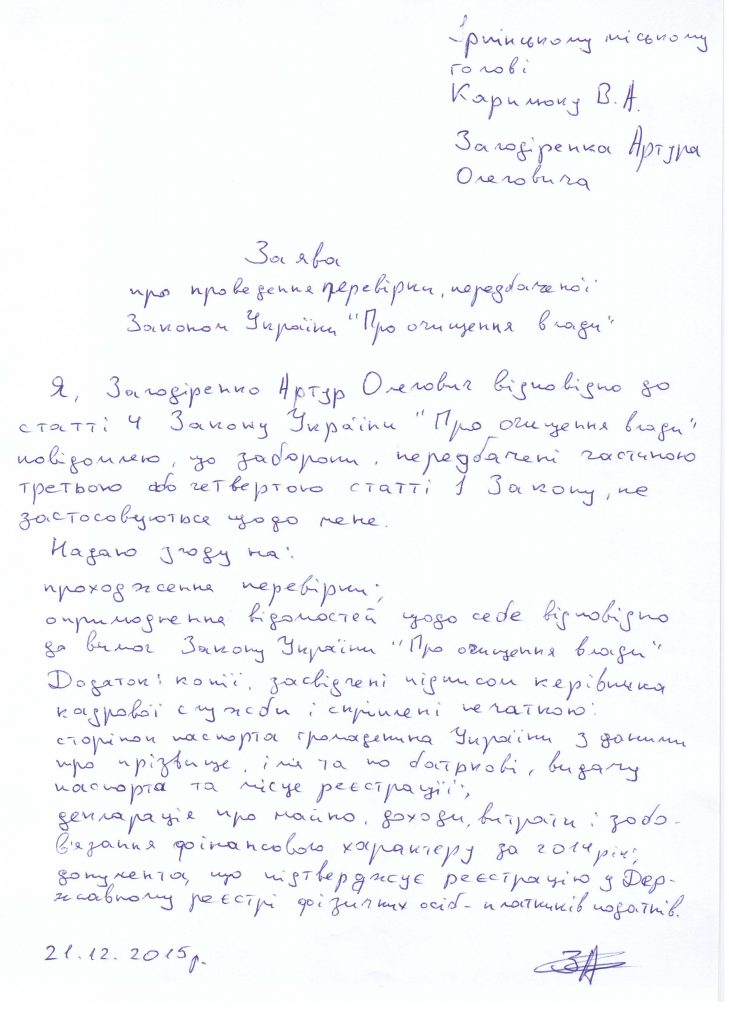 Ірпінському міському
голові
Карплюку В.А.
Загодіренка Артура
Олеговича
Заява
про проведення перевірки, передбаченої
Законом України "Про очищення влади"
Я, Загодіренко Артур Олегович відповідно до
статті 4 Закону України "Про очищення влади"
повідомляю, що заборони, передбачені частиною
третьою або четвертою статті 1 Закону, не
застосовуються щодо мене.
Надаю згоду на:
проходження перевірки;
оприлюднення відомостей щодо себе відповідно
до вимог Закону України "Про очищення влади"
Додаток: копії, засвідчені підписом керівника
кадрової служби і скріплені печаткою:
сторінок паспорта громадянина України з даними
про прізвище, ім'я та по батькові, видачу
паспорта та місце реєстрації;
декларація про майно, доходи, витрати і зобо-
в'язання фінансового характеру за 2014 рік;
документа, що підтверджує реєстрацію у Дер-
жавному реєстрі фізичних осіб - платників податків.
21.12.2015р. ЗА